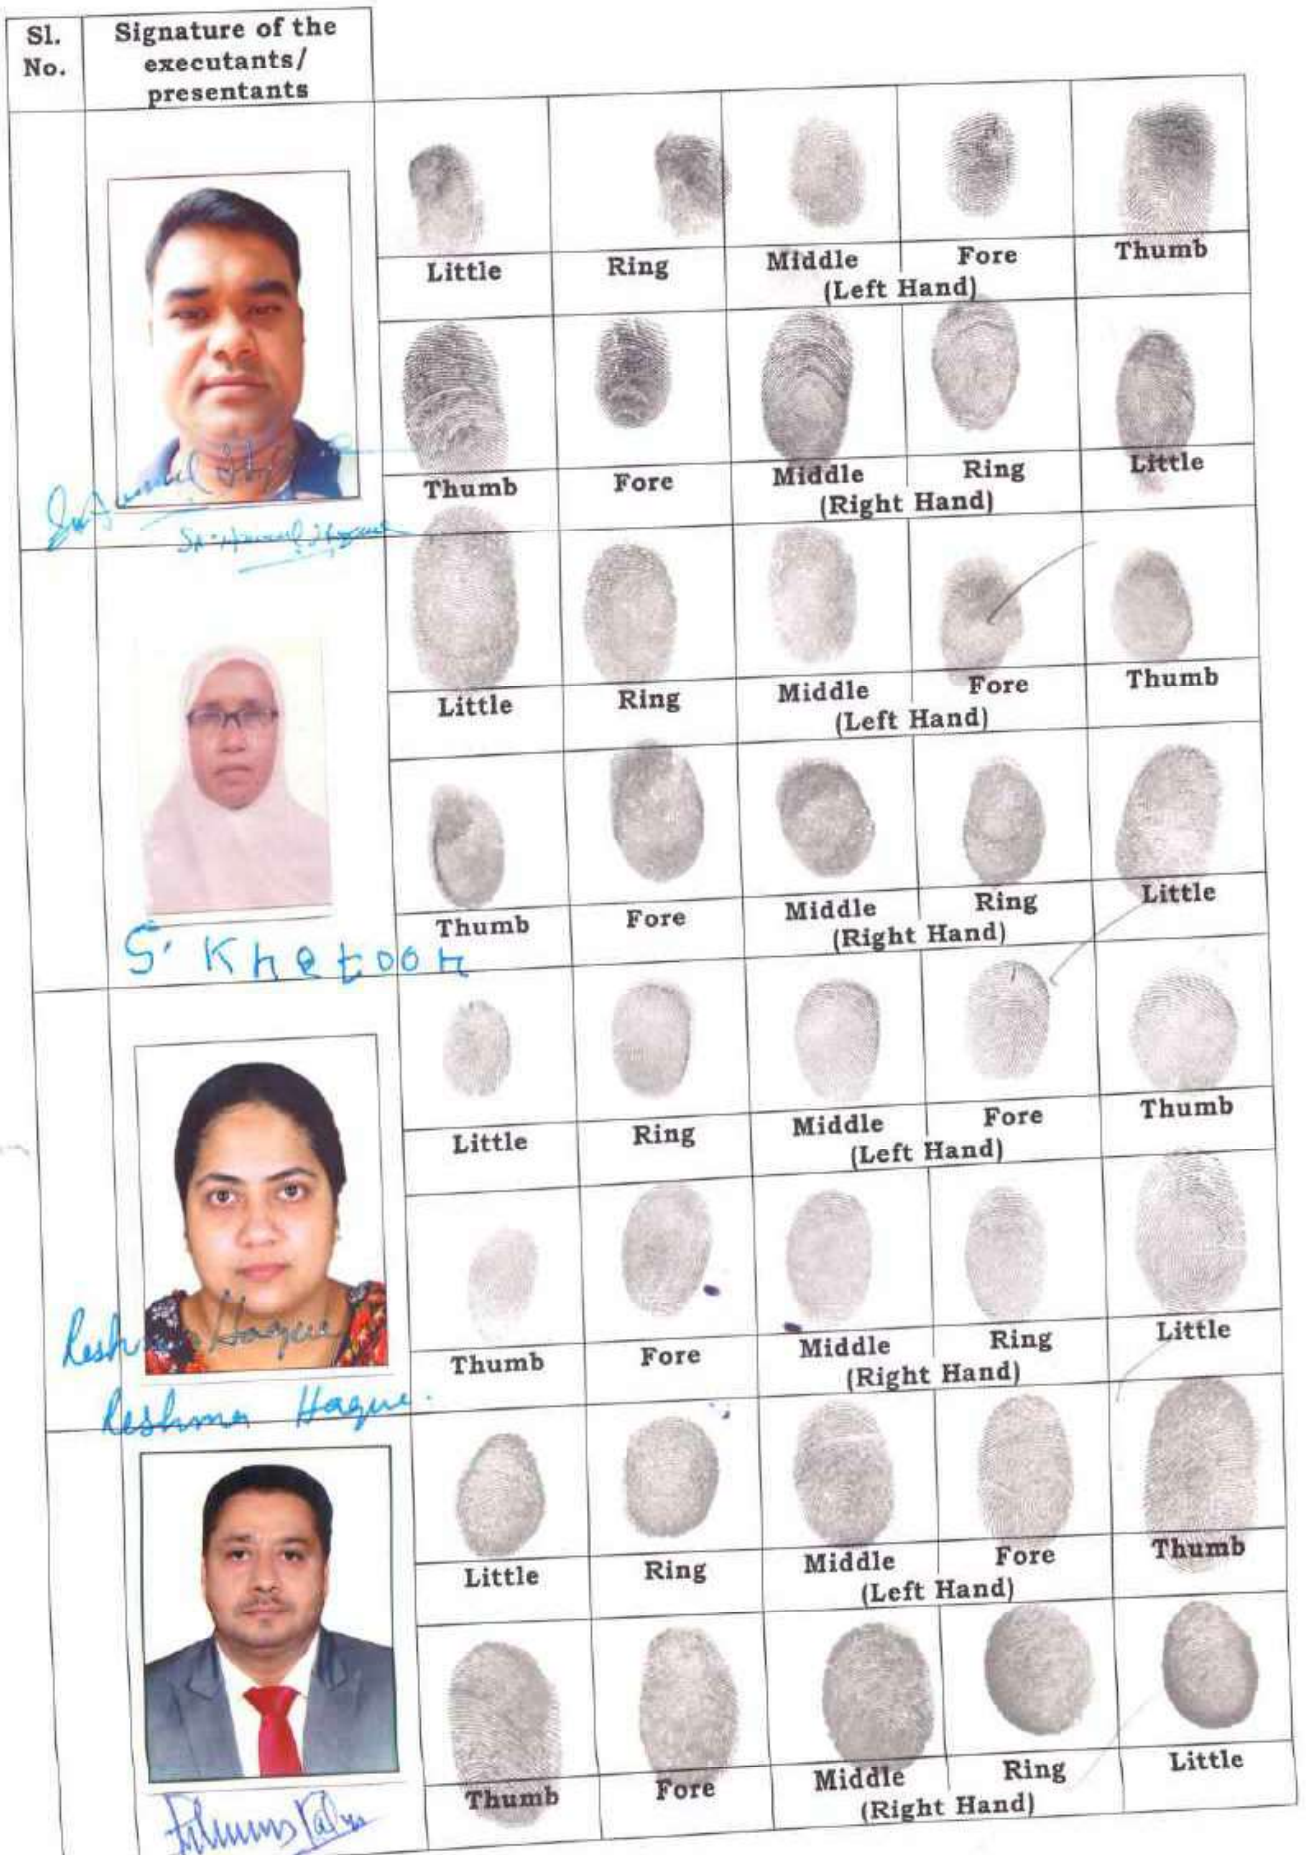 Sl. No.
Signature of the executants/ presentants
Little Ring Middle Fore Thumb
(Left Hand)
Thumb Fore Middle Ring Little
(Right Hand)
Little Ring Middle Fore Thumb
(Left Hand)
Thumb Fore Middle Ring Little
(Right Hand)
S. Khatoon
Little Ring Middle Fore Thumb
(Left Hand)
Thumb Fore Middle Ring Little
(Right Hand)
Reshma Haque
Reshma Haque.
Little Ring Middle Fore Thumb
(Left Hand)
Thumb Fore Middle Ring Little
(Right Hand)